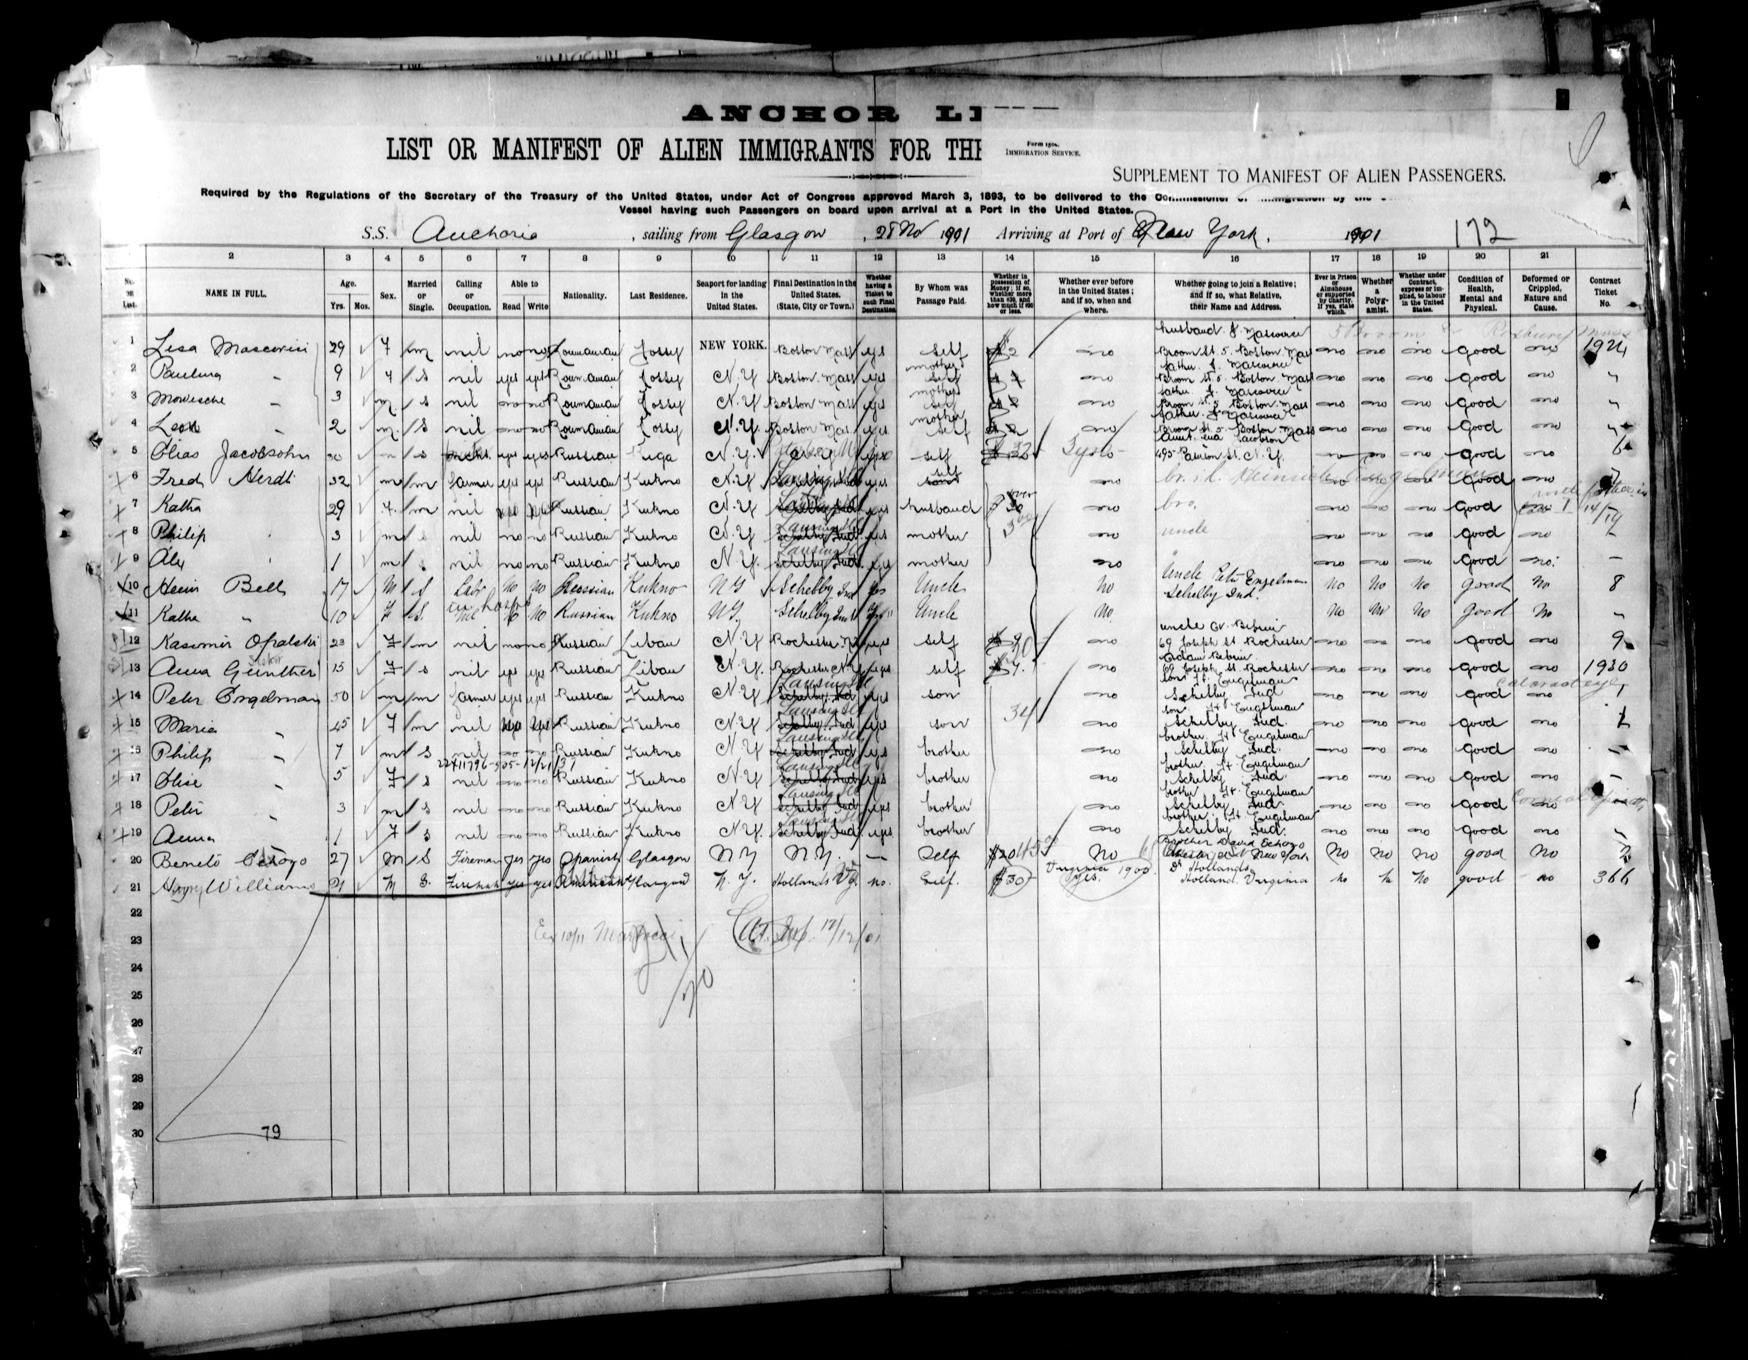 ANCHOR LI
LIST OR MANIFEST OF ALIEN IMMIGRANTS FOR THE
Form 1500.
IMMIGRATION SERVICE.
SUPPLEMENT TO MANIFEST OF ALIEN PASSENGERS.
Required by the Regulations of the Secretary of the Treasury of the United States, under Act of Congress approved March 3, 1893, to be delivered to the Commissioner of Immigration by the
Vessel having such Passengers on board upon arrival at a Port in the United States.
S.S. Anchoria, sailing from Glasgow, 28 Nov 1901 Arriving at Port of New York, 1901 172
2 3 4 5 6 7 8 9 10 11 12 13 14 15 16 17 18 19 20 21
No. on List. NAME IN FULL. Age. Yrs. Mos. Sex. Married or Single. Calling or Occupation. Able to Read Write Nationality. Last Residence. Seaport for landing in the United States. Final Destination in the United States. (State, City or Town.) Whether having a Ticket to such Final Destination By Whom was Passage Paid. Whether in possession of Money; if so, whether more than $30, and how much if $30 or less. Whether ever before in the United States; and if so, when and where. Whether going to join a Relative; and if so, what Relative, their Name and Address. Ever in Prison or Almshouse or supported by Charity. If yes, state which. Whether a Polygamist. Whether under Contract, express or implied, to labour in the United States. Condition of Health, Mental and Physical. Deformed or Crippled, Nature and Cause. Contract Ticket No.
husband J. Mascovici
1 Lisa Mascovici 29 f m nil no no Roumanian Jossy NEW YORK. Boston Mass yes self $2 no Broom St 5. Boston Mass no no no Good no 1924
mother father J. Mascovici
2 Paulina " 9 f s nil yes yes Roumanian Jossy N.Y. Boston Mass yes self no Broom St 5. Boston Mass no no no Good no "
mother father J. Mascovici
3 Mowische " 3 m s nil no no Roumanian Jossy N.Y. Boston Mass yes self no Broom St 5. Boston Mass no no no Good no "
mother father J. Mascovici
4 Leon " 2 m s nil no no Roumanian Jossy N.Y. Boston Mass yes self no Broom St 5. Boston Mass no no no Good no "
5 Elias Jacobsohn 20 m s yes yes Russian Riga N.Y. self $32 no N.Y. no no no Good no 6
6 Fred Herdt 32 m m farmer yes yes Russian Kukno N.Y. Lansing yes self no br. i. l. Heinrich Engelman no no no Good no 7
7 Katha 29 f m nil yes yes Russian Kukno N.Y. Lansing yes husband 30 no bro. no no no Good
8 Philip 3 m s nil no no Russian Kukno N.Y. Lansing Schelby Ind. yes mother no uncle no no no Good no
9 Alex 1 m s nil no no Russian Kukno N.Y. Lansing Schelby Ind. yes mother no no no no Good no
Uncle Petr Engelman
10 Heinr Bell 17 M S Labr No No Russian Kukno NY Schelby Ind yes Uncle No Schelby Ind. No No No good No 8
11 Kathe " 10 F S nil No No Russian Kukno NY. Schelby Ind yes Uncle No No No No good No "
12 Kasimir Opalski 23 f m nil no no Russian Libau N.Y. Rochester N.Y. yes self $ no 69 Joseph St Rochester no no no good no 9
sister
13 Anna Günther 15 f s nil yes yes Russian Libau N.Y. Rochester N.Y. yes self $7. no 69 Joseph St Rochester no no no good no 1930
Lansing son H. Engelman cataract eye
14 Peter Engelman 50 m m farmer yes yes Russian Kukno N.Y. Schelby Ind yes son no Schelby Ind no no no good no 1
Lansing son H. Engelman
15 Maria " 45 f m nil yes yes Russian Kukno N.Y. Schelby Ind yes son 34 no Schelby Ind. no no no good no
Lansing brother H. Engelman
16 Philip " 7 m s nil no no Russian Kukno N.Y. Schelby Ind yes brother no Schelby Ind. no no no good no
2x11796-505-12/21/37 Lansing brother H. Engelman
17 Elise " 5 f s nil no no Russian Kukno N.Y. Schelby Ind yes brother no Schelby Ind no no no good no
Lansing brother H. Engelman
18 Peter " 3 m s nil no no Russian Kukno N.Y. Schelby Ind yes brother no Schelby Ind. no no no good no
Lansing brother H. Engelman
19 Anna " 1 f s nil no no Russian Kukno N.Y. Schelby Ind yes brother no Schelby Ind. no no no good no "
Brother David Echoyo
20 Benito Echoyo 27 M S Fireman yes yes Spanish Glasgow NY N.Y. — Self $20 No New York No No No good No 2
Virginia 1900
21 Harry Williams 21 M S. Fireman yes yes American Glasgow N.Y. Hollands Va. no. Self. $30 yes. Holland Virginia no no No good no 366
22
23
24
25
26
27
28
29
30 79